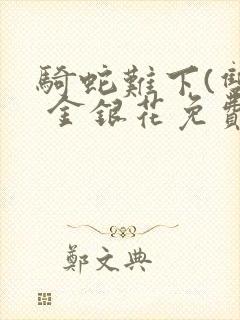 騎蛇難下(雙
金銀花免費
鄭文典